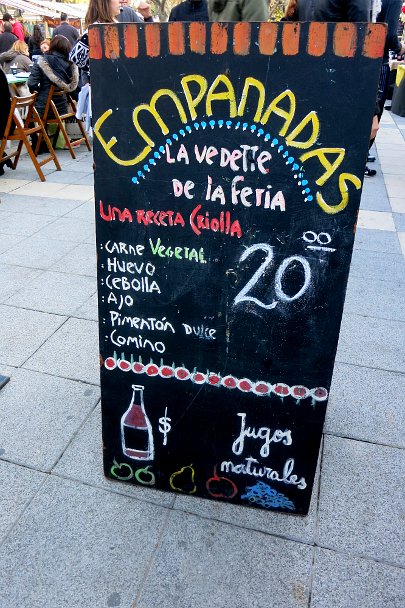 EMPANADAS
LA VEDETTE
DE LA FERIA
UNA RECETA CRIOLLA
· CARNE VEGETAL
· HUEVO
· CEBOLLA
· AJO
· PIMENTÓN DULCE
· COMINO
20 00
$
Jugos
naturales